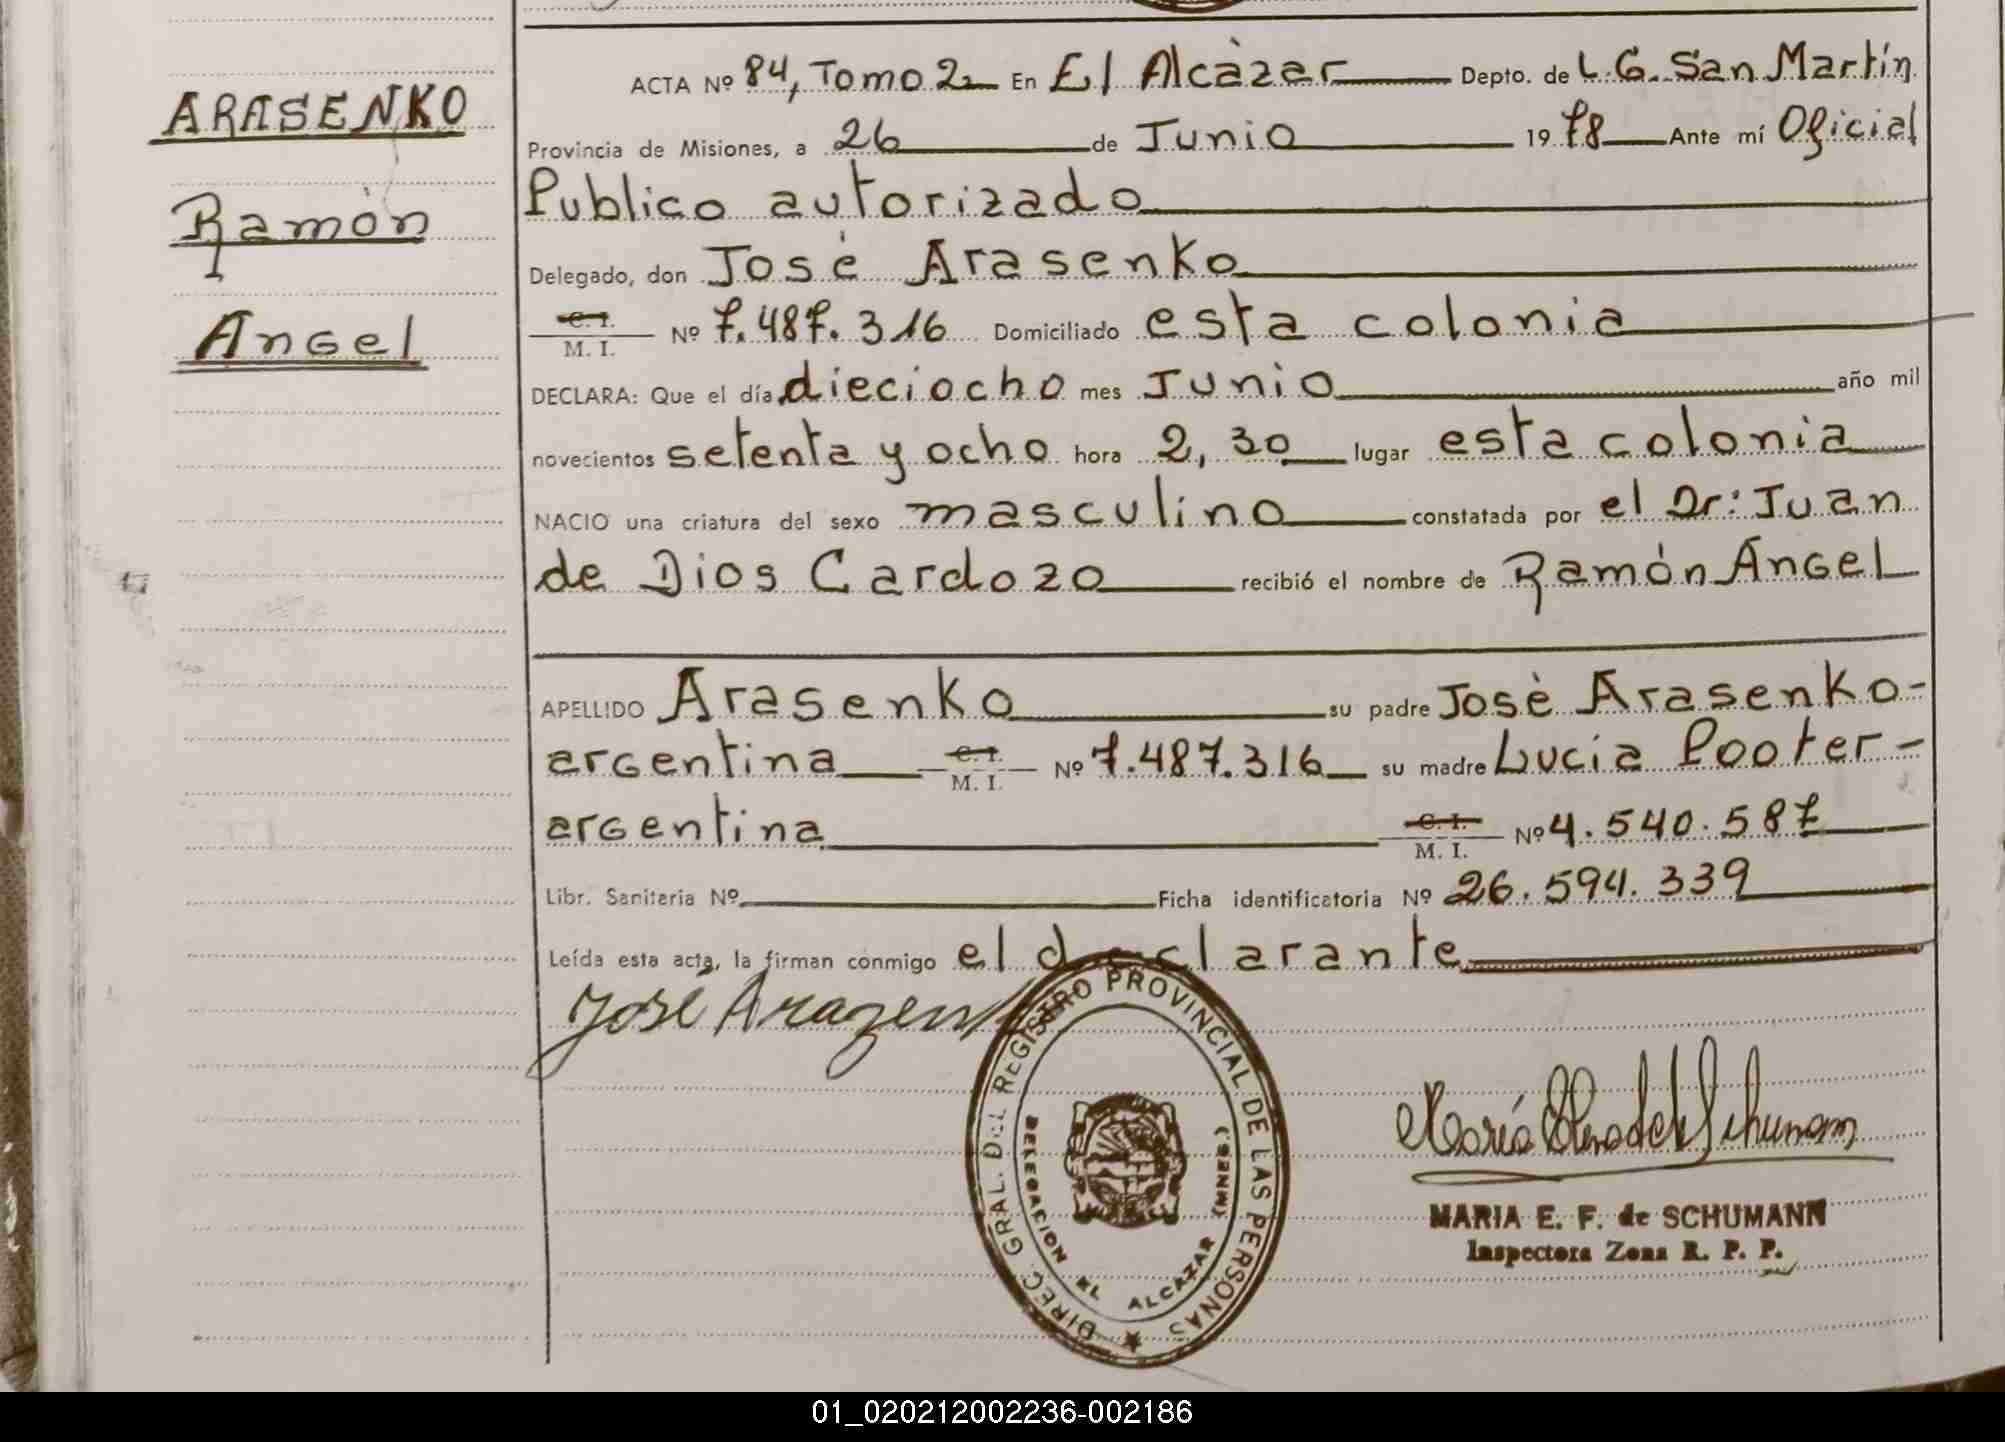 ACTA Nº 84, Tomo 2 En El Alcàzar Depto. de L. G. San Martín
ARASENKO
Provincia de Misiones, a 26 de Junio 1978 Ante mí Oficial
Ramón
Publico autorizado
Delegado, don José Arasenko
Angel
C. I. M. I. Nº 7.487.316 Domiciliado esta colonia
DECLARA: Que el día dieciocho mes Junio año mil
novecientos setenta y ocho hora 2,30 lugar esta colonia
NACIO una criatura del sexo masculino constatada por el Dr: Juan
de Dios Cardozo recibió el nombre de Ramón Angel
APELLIDO Arasenko su padre Josè Arasenko-
argentina C. I. M. I. Nº 7.487.316 su madre Lucia Pooter-
argentina C. I. M. I. Nº 4.540.587
Libr. Sanitaria Nº Ficha identificatoria Nº 26.594.339
Leída esta acta, la firman conmigo el declarante
José
DIREC. GRAL. DEL REGISTRO PROVINCIAL DE LAS PERSONAS
DELEGACION EL ALCAZAR (MNES.)
MARIA E. F. de SCHUMANN
Inspectora Zona R. P. P.
01_020212002236-002186